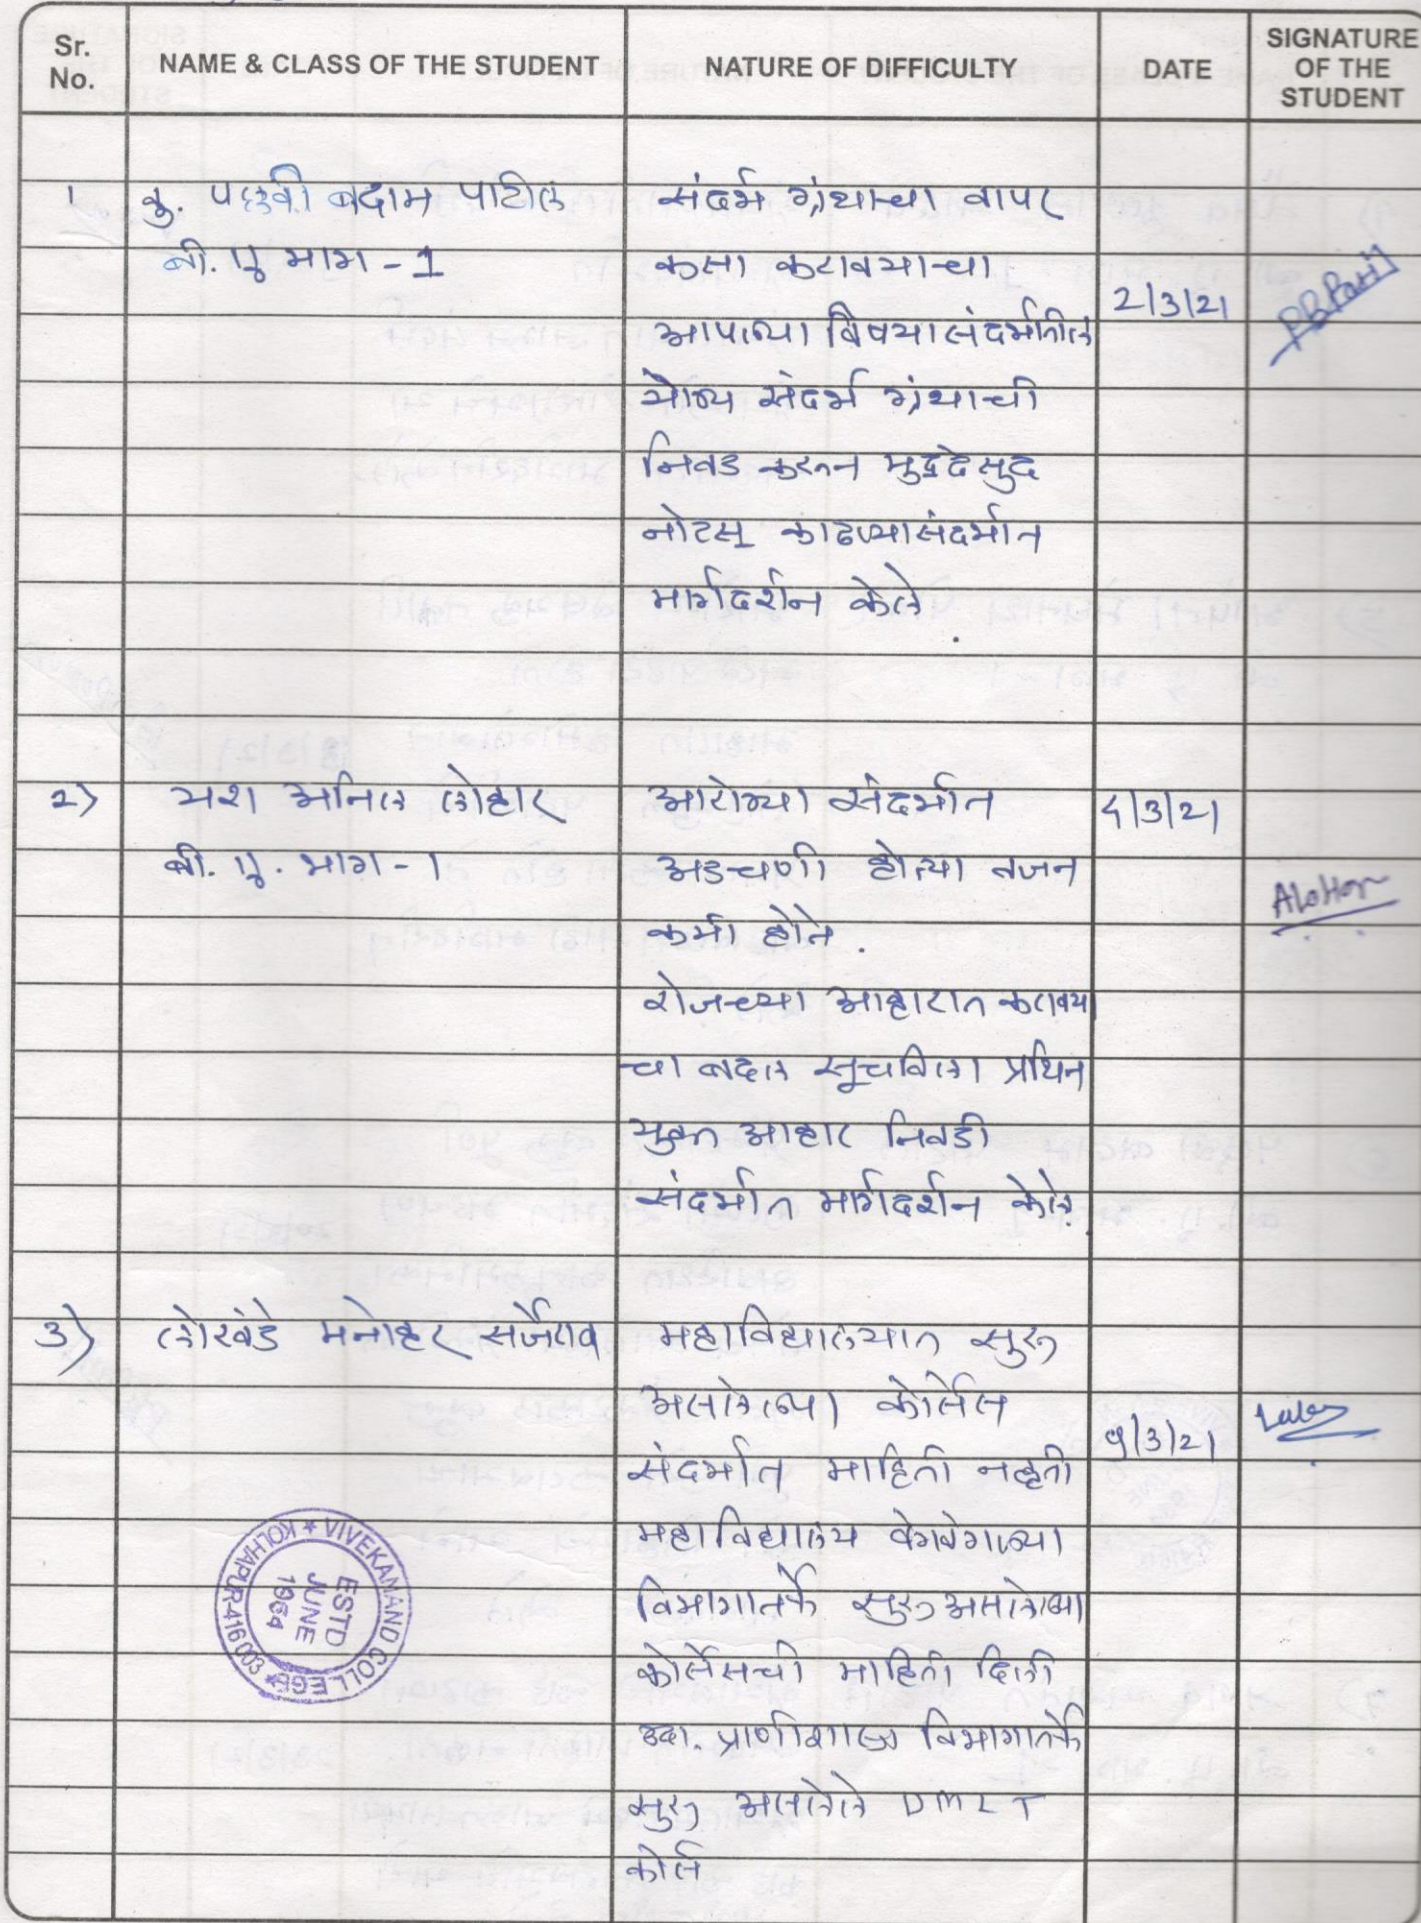 Sr. No.
NAME & CLASS OF THE STUDENT
NATURE OF DIFFICULTY
DATE
SIGNATURE OF THE STUDENT
1
कु. पल्लवी बदाम पाटील
बी. ए भाग - 1
संदर्भ ग्रंथाचा वापर
कसा करावयाचा
आपल्या विषयासंदर्भातील
योग्य संदर्भ ग्रंथाची
निवड करून मुद्देसुद
नोटस् काढण्यासंदर्भात
मार्गदर्शन केले.
2/3/21
PBPatil
2)
यश अनिल लोहार
बी. ए. भाग - 1
आरोग्या संदर्भात
अडचणी होत्या वजन
कमी होते.
रोजच्या आहारात करावया
चा बदल सूचविला प्रथिन
युक्त आहार निवडी
संदर्भात मार्गदर्शन केले.
4/3/21
ALohar
3)
लोखंडे मनोहर सर्जेराव
महाविद्यालयात सुरू
असलेल्या कोर्सेस
संदर्भात माहिती नव्हती
महाविद्यालय वेगवेगळ्या
विभागातर्फे सुरू असलेल्या
कोर्सेसची माहिती दिली
उदा. प्राणीशास्त्र विभागातर्फे
सुरू असलेले DMLT
कोर्स
9/3/21
VIVEKANAND COLLEGE * KOLHAPUR 416 003 *
ESTD
JUNE
1964